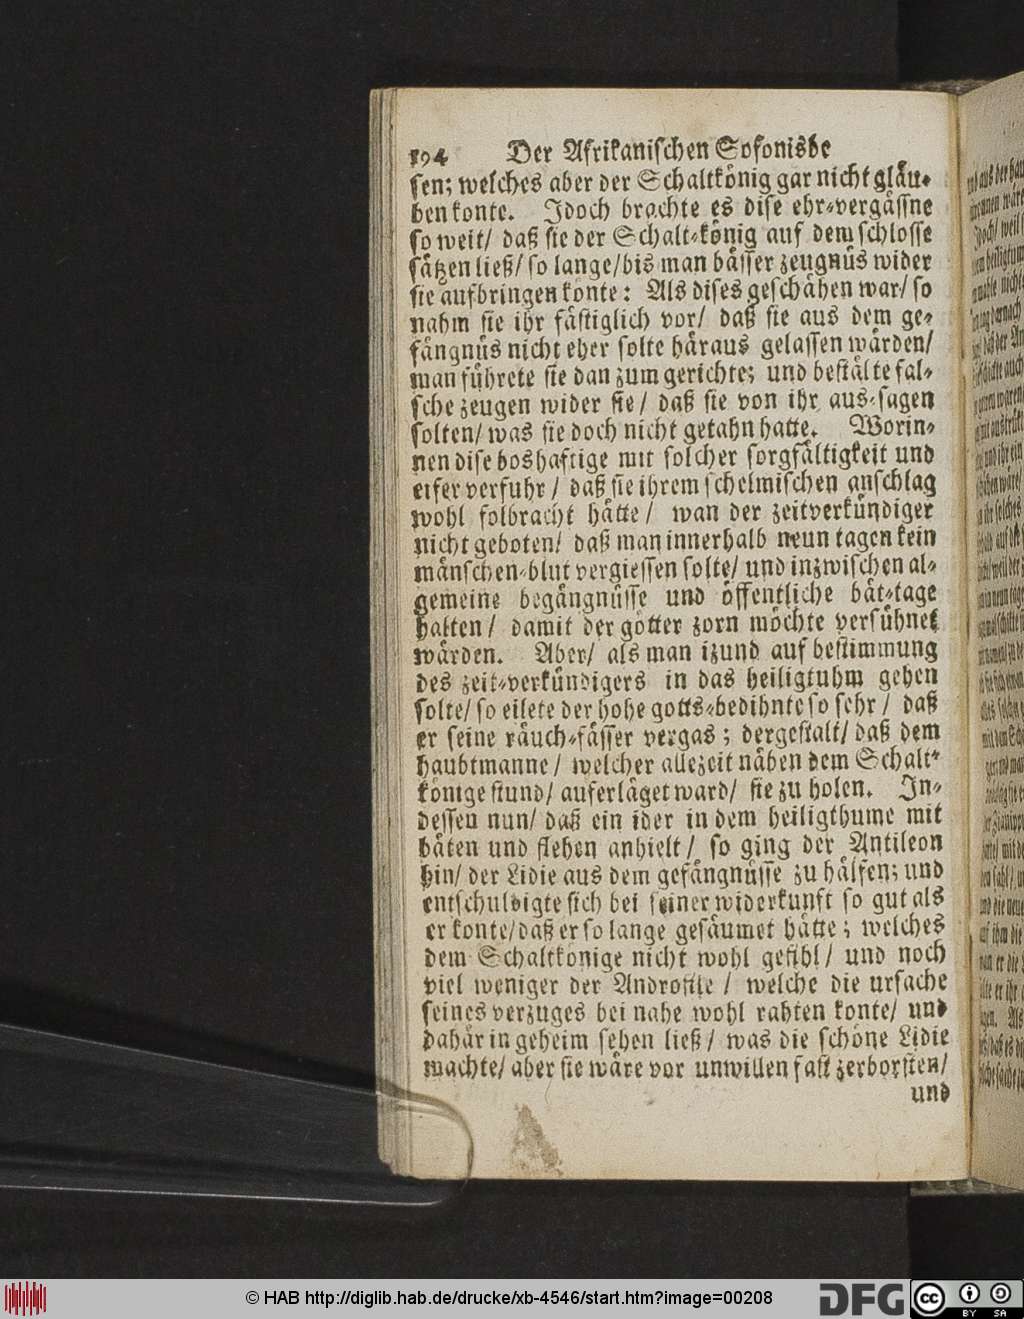 194 Der Afrikanischen Sofonisbe
sen; welches aber der Schaltkönig gar nicht gläu-
ben konte. Idoch brachte es dise ehr-vergässne
so weit/ daß sie der Schalt-könig auf dem schlosse
sätzen ließ/ so lange/ bis man bässer zeugnüs wider
sie aufbringen könte: Als dises geschähen war/ so
nahm sie ihr fästiglich vor/ daß sie aus dem ge-
fängnüs nicht eher solte häraus gelassen wärden/
man führete sie dan zum gerichte; und bestälte fal-
sche zeugen wider sie/ daß sie von ihr aus-sagen
solten/ was sie doch nicht getahn hatte. Worin-
nen dise boshaftige mit solcher sorgfältigkeit und
eifer verfuhr/ daß sie ihrem schelmischen anschlag
wohl folbracht hätte/ wan der zeitverkündiger
nicht geboten/ daß man innerhalb neun tagen kein
mänschen-blut vergiessen solte/ und inzwischen al-
gemeine begängnüsse und öffentliche bät-tage
halten/ damit der götter zorn möchte versühnet
wärden. Aber/ als man izund auf bestimmung
des zeit-verkündigers in das heiligtuhm gehen
solte/ so eilete der hohe gotts-bedihnte so sehr/ daß
er seine räuch-fässer vergas; dergestalt/ daß dem
haubtmanne/ welcher allezeit näben dem Schalt-
könige stund/ auferläget ward/ sie zu holen. In-
dessen nun/ daß ein ider in dem heiligthume mit
bäten und flehen anhielt/ so ging der Antileon
hin/ der Lidie aus dem gefängnüsse zu hälfen; und
entschuldigte sich bei seiner widerkunft so gut als
er konte/ daß er so lange gesäumet hätte; welches
dem Schaltkönige nicht wohl gefihl/ und noch
viel weniger der Androsile/ welche die ursache
seines verzuges bei nahe wohl rahten konte/ und
dahär in geheim sehen ließ/ was die schöne Lidie
machte/ aber sie wäre vor unwillen fast zerborsten/
und
© HAB http://diglib.hab.de/drucke/xb-4546/start.htm?image=00208
DFG
cc BY SA